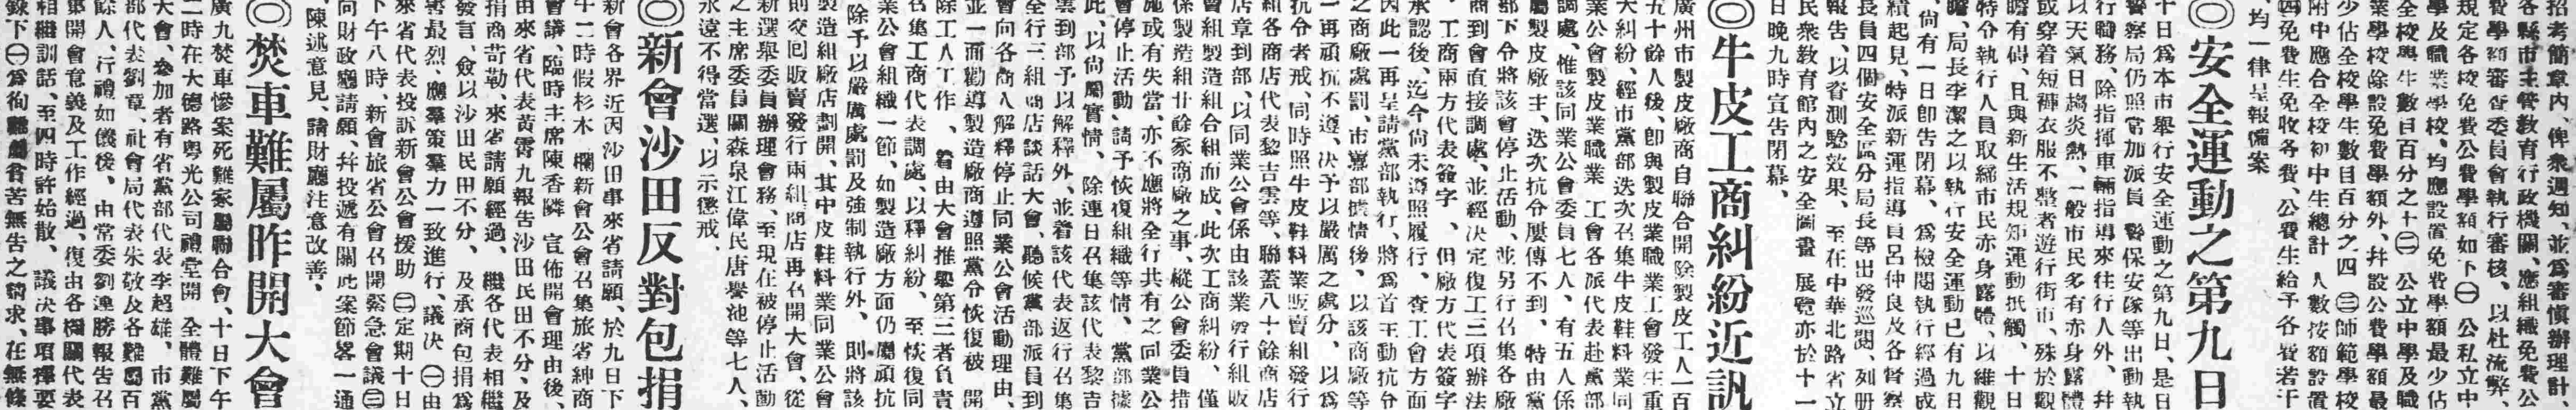 招考簡章內、俾衆週知、並爲審慎辦理計、
各縣市主管敎育行政機關、應組織免費公
費學額審查委員會執行審核、以杜流弊、
規定各校免費公費學額如下㊀公私立中
學及職業學校、均應設置免費學額最少佔
全校學生數目百分之十㊁公立中學及職
業學校除設免費學額外、幷設公費學額最
少佔全校學生數目百分之四㊂師範學校
附中應合全校初中生總計人數按額設置
㊃免費生免收各費、公費生給予各費若干
均一律呈報備案
◎安全運動之第九日
十日爲本市舉行安全運動之第九日、是日
警察局仍照常加派員警保安隊等出動執
行職務、除指揮車輛指導來往行人外、幷
以天氣日趨炎熱、一般市民多有赤身露體
或穿着短褲衣服不整者遊行街市、殊於觀
瞻有碍、且與新生活規矩運動抵觸、十日
特令執行人員取締市民赤身露體、以維觀
瞻、局長李潔之以執行安全運動已有九日
、尙有一日卽吿閉幕、爲檢閱執行經過成
績起見、特派新運指導員呂仲良及各督察
長員四個安全區分局長等出發巡閱、列册
報吿、以查測騐效果、至在中華北路省立
民衆敎育館內之安全圖畫展覽亦於十一
日晚九時宣吿閉幕、
◎牛皮工商糾紛近訊
廣州市製皮廠商自聯合開除製皮工人一百
五十餘人後、卽與製皮業職業工會發生重
大糾紛、經市黨部迭次召集牛皮鞋料業同
業公會製皮業職業工會各派代表赴黨部
調處、惟該同業公會委員七人、有五人係
屬製皮廠主、迭次抗令屢傳不到、特由黨
部下令將該會停止活動、並另行召集各廠
商到會直接調處、並經决定復工三項辦法
、工商兩方代表簽字、但廠方代表簽字
承認後、迄今尙未遵照履行、查工會方面
因此一再呈請黨部執行、將爲首主動抗令
之商廠處罰、市黨部據情後、以該商廠等
一再頑抗不遵、决予以嚴厲之處分、以爲
抗令者戒、同時照牛皮鞋料業販賣組發行
組各商店代表黎吉雲等、聯蓋八十餘商店
店章到部、以同業公會係由該業發行組販
賣組製造組合組而成、此次工商糾紛、僅
係製造組廿餘家商廠之事、縱公會委員措
施或有失當、亦不應將全行共有之同業公
會停止活動、請予恢復組織等情、黨部據
此、以尙屬實情、除連日召集該代表黎吉
雲到部予以解釋外、並着該代表返行召集
全行三組商店談話大會、聽候黨部派員到
會向各商人解釋停止同業公會活動理由、
並一面勸導製造廠商遵照黨令恢復被開
除工人工作、着由大會推舉第三者負責
召集工商代表調處、以釋糾紛、至恢復同
業公會組織一節、如製造廠方面仍屬頑抗
、除予以嚴厲處罰及強制執行外、則將該
製造組廠店劃開、其中皮鞋料業同業公會
則交回販賣發行兩組商店再召開大會、從
新選舉委員辦理會務、至現在被停止活動
之主席委員關森泉江偉民唐譽池等七人、
永遠不得當選、以示懲戒、
◎新會沙田反對包捐
新會各界近因沙田事來省請願、於九日下
午二時假杉木欄新會公會召集旅省紳商
會議、臨時主席陳香隣宣佈開會理由後、
由來省代表黃霄九報吿沙田民田不分、及
捐商苛勒、來省請願經過、繼各代表相繼
發言、僉以沙田民田不分、及承商包捐爲
害最烈、應羣策羣力一致進行、議决㊀由
來省代表投訴新會公會援助㊁定期十日
下午八時、新會旅省公會召開緊急會議㊂
向財政廳請願、幷投遞有關此案節畧一通
、陳述意見、請財廳注意改善、
◎焚車難屬昨開大會
廣九焚車慘案死難家屬聯合會、十日下午
二時在大德路粤光公司禮堂開全體難屬
大會、參加者有省黨部代表李超雄、市黨
部代表劉章、社會局代表朱敬及各難屬百
餘人、行禮如儀後、由常委劉連勝報吿召
集開會意義及工作經過、復由各機關代表
相繼訓話、至四時許始散、議决事項擇要
錄下㊀爲徇難屬貧苦無吿之請求、在無條